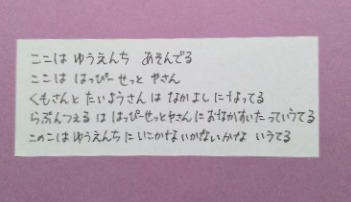 ここは ゆうえんち あそんでる
ここは はっぴーせっと やさん
くもさんと たいようさん は なかよし になってる
らぷんつぇる は はっぴーせっとヤさん に おなかすいた っていってる
このこは ゆうえんち に いこかな いかないかな いうてる